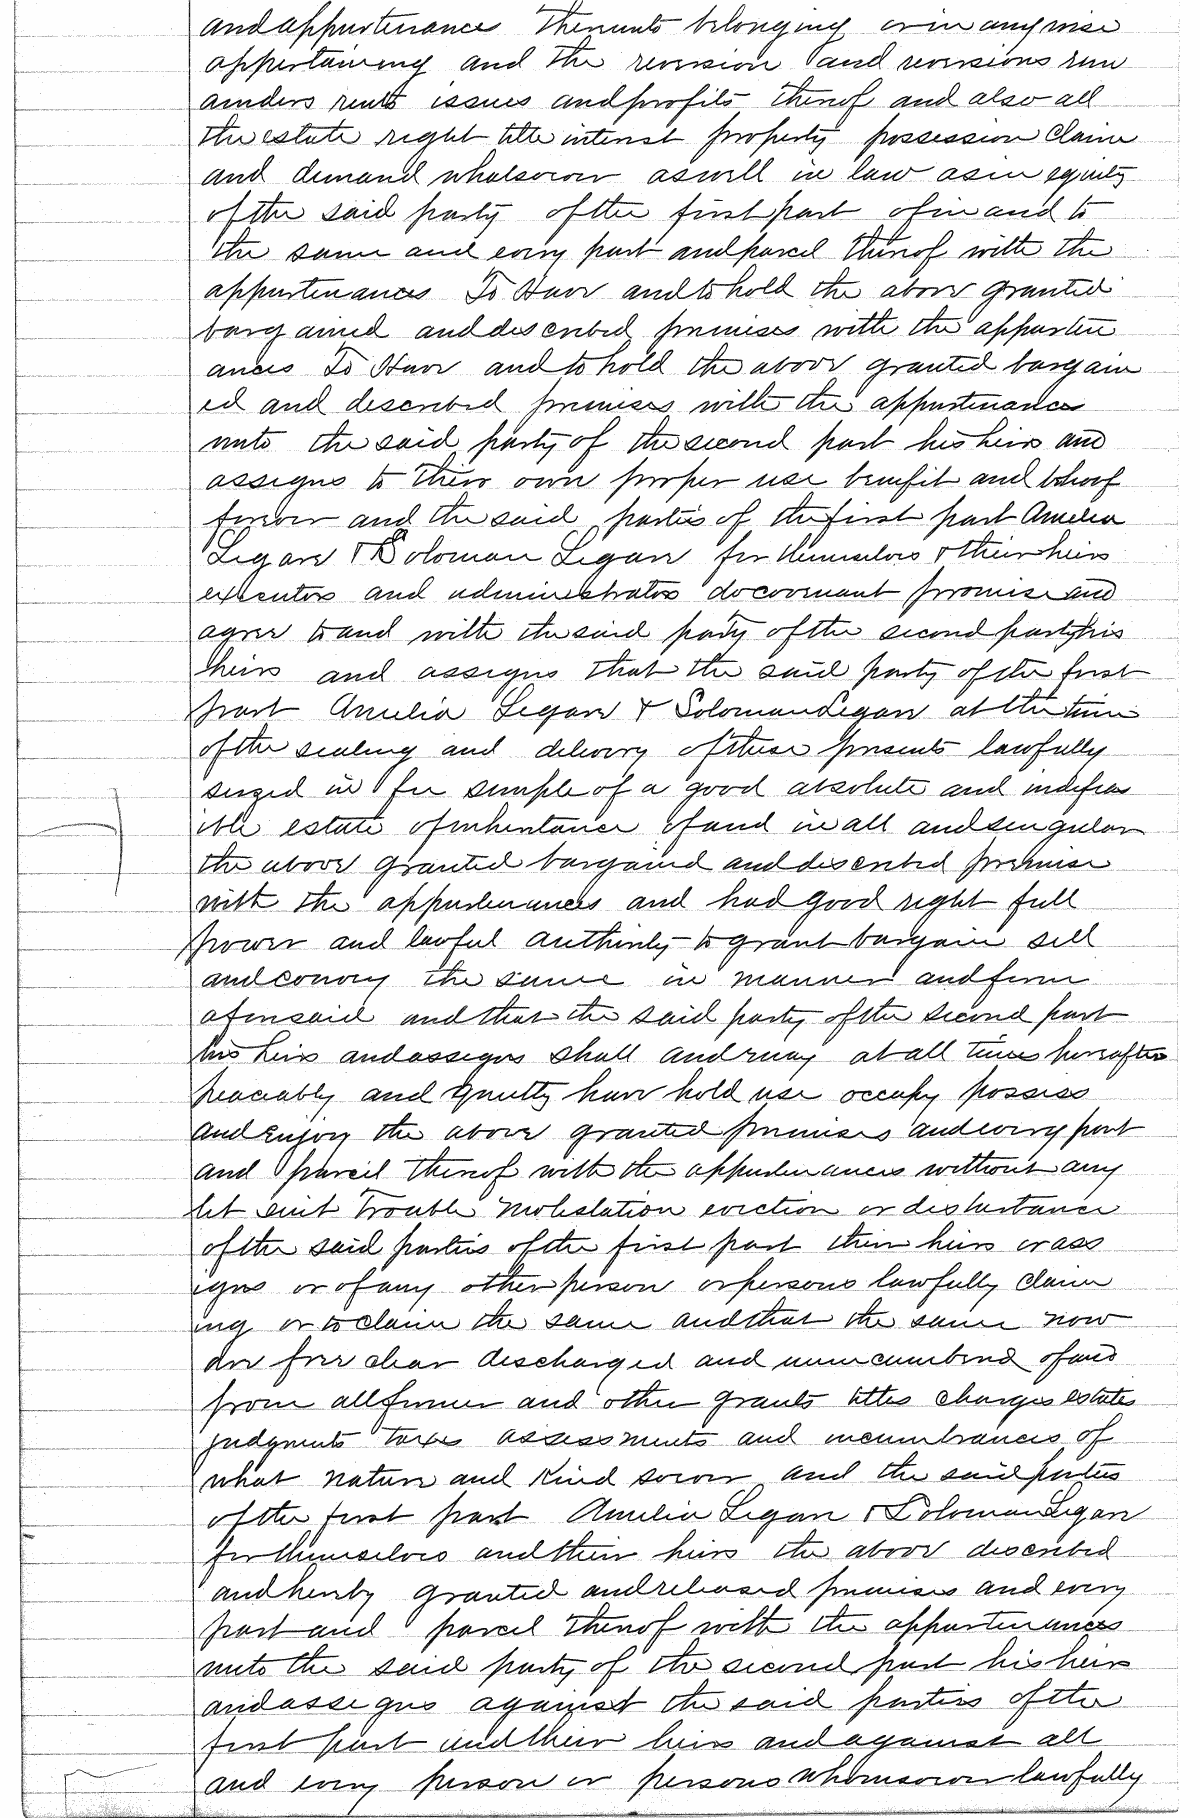 and appurtenances thereunto belonging or in any wise
appertaining and the reversion and reversions rem
ainders rents issues and profits thereof and also all
the estate right title interest property possession Claim
and demand whatsoever as well in law as in equity
of the said party of the first part of in and to
the same and every part and parcel thereof with the
appurtenances To Have and to hold the above granted
bargained and described premises with the appurten
ances To Have and to hold the above granted bargain
ed and described premises with the appurtenances
unto the said party of the second part his heirs and
assigns to their own proper use benefit and behoof
forever and the said parties of the first part Amelia
Segar & Soloman Segar for themselves & their heirs
executors and administrators do covenant promise and
agree to and with the said party of the second party his
heirs and assigns that the said party of the first
part Amelia Segar & Soloman Segar at the time
of the sealing and delivery of these presents lawfully
seized in fee simple of a good absolute and indefeas
ible estate of inheritance of and in all and singular
the above granted bargained and described premise
with the appurtenances and had good right full
power and lawful authority to grant bargain sell
and convey the same in manner and form
aforesaid and that the said party of the second part
his heirs and assigns shall and may at all times hereafter
peaceably and quietly have hold use occupy possess
and Enjoy the above granted premises and every part
and parcel thereof with the appurtenances without any
let suit trouble molestation eviction or disturbance
of the said parties of the first part their heirs or ass
igns or of any other person or persons lawfully claim
ing or to claim the same and that the same now
are free clear discharged and unincumbered of and
from all former and other grants titles charges estates
judgments taxes assessments and incumbrances of
what nature and kind soever and the said parties
of the first part Amelia Segar & Soloman Segar
for themselves and their heirs the above described
and hereby granted and released premises and every
part and parcel thereof with the appurtenances
unto the said party of the second part his heirs
and assigns against the said parties of the
first part and their heirs and against all
and every person or persons whomsoever lawfully